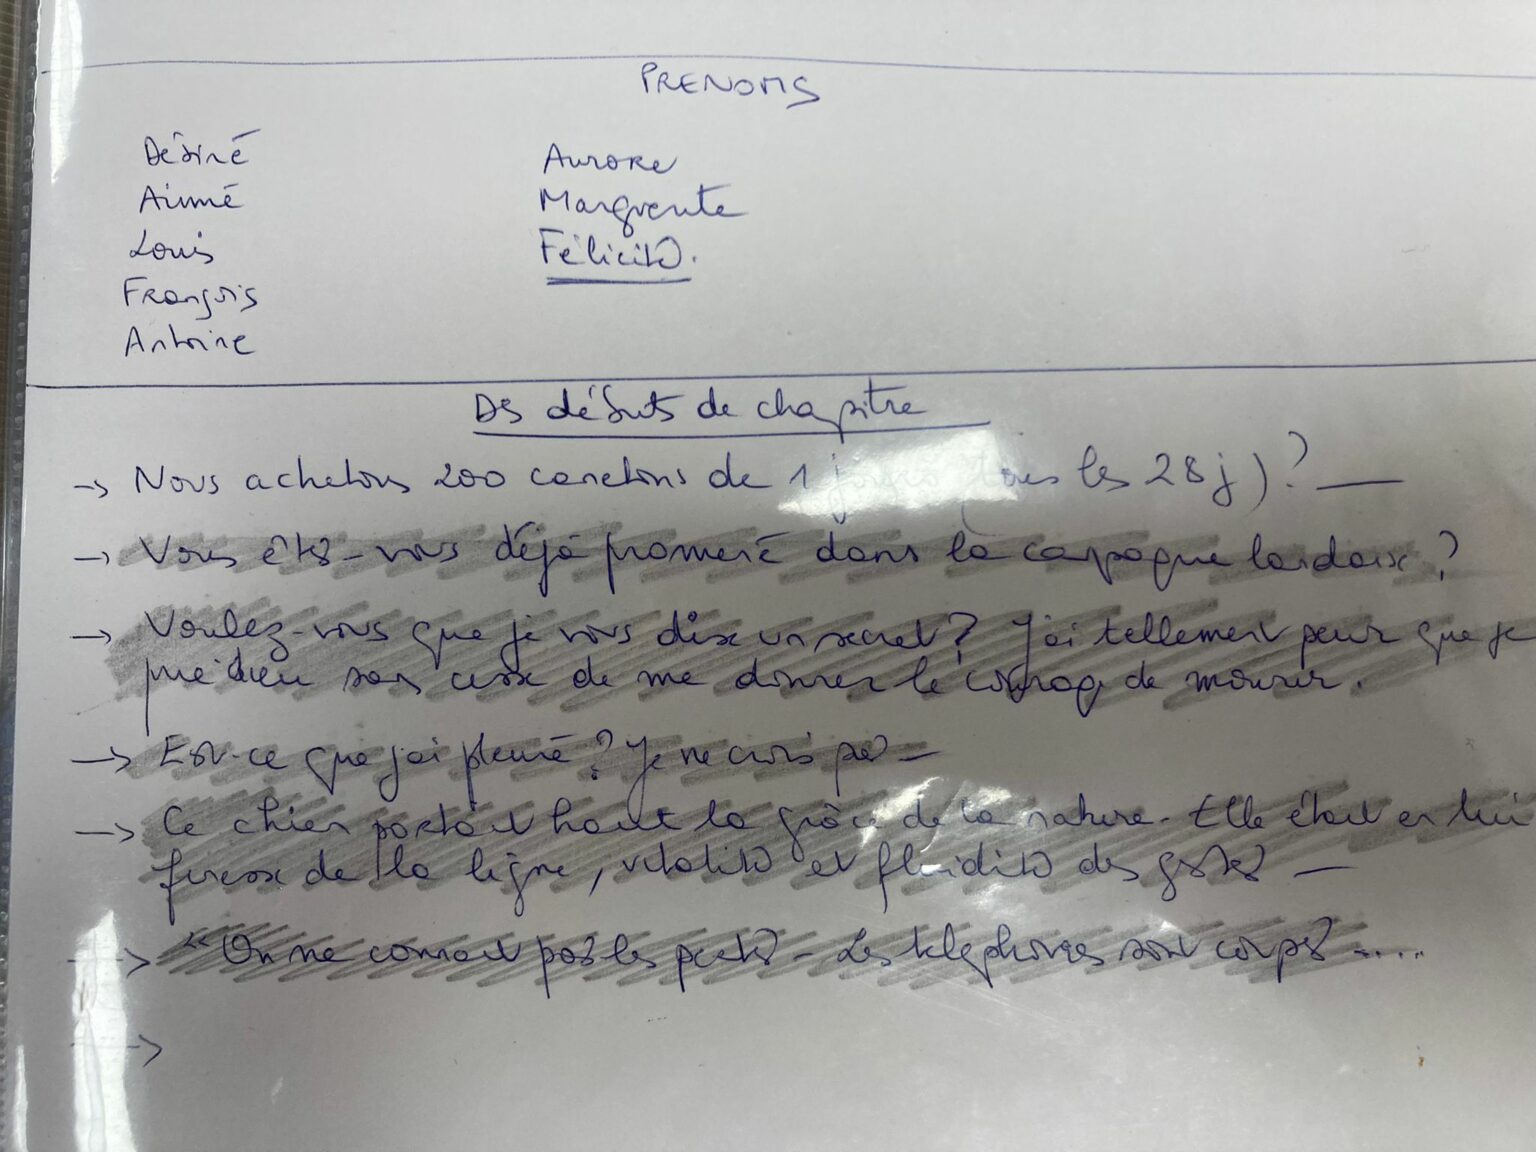 PRENOMS
Désiré Aurore
Aimé Marguerite
Louis Félicité.
François
Antoine
Des débuts de chapitre
→ Nous achetons 200 canetons de 1 jour (tous les 28 j) ? —
→ Vous êtes-vous déjà promené dans la campagne landaise ?
→ Voulez-vous que je vous dise un secret ? J'ai tellement peur que je
prie dieu sans cesse de me donner le courage de mourir.
→ Est-ce que j'ai pleuré ? Je ne crois pas —
→ Ce chien portait haut la grâce de la nature. Elle était en lui
finesse de la ligne, vitalité et fluidité des gestes —
→ "On ne connait pas les pertes - Les téléphones sont coupés .....
→